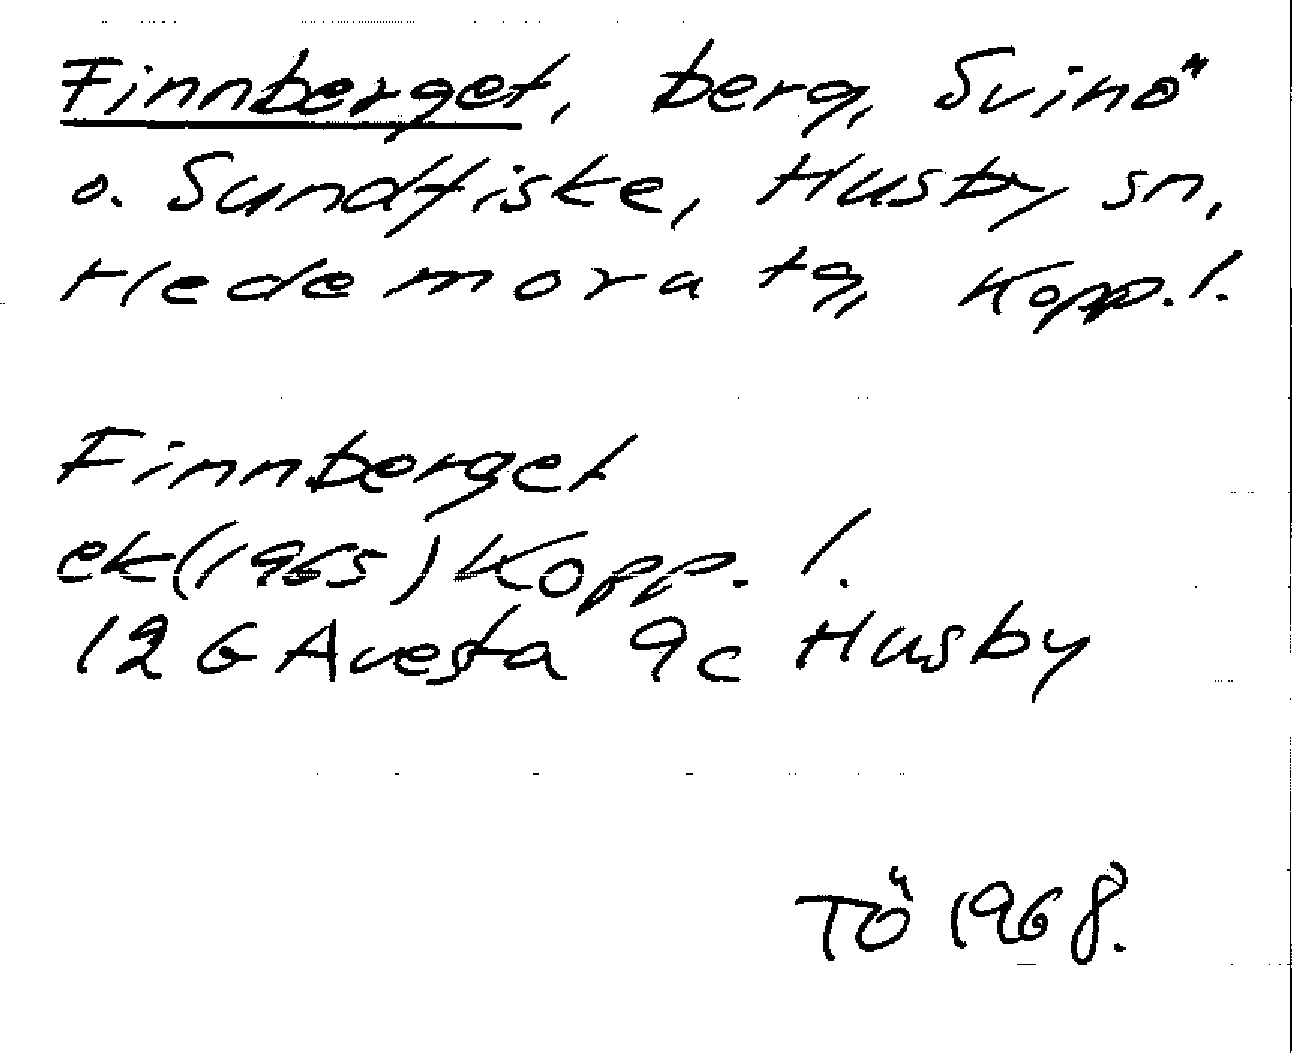 Finnberget, berg, Svinö
o. Sundfiske, Husby sn,
Hedemora tg, Kopp. l.
Finnberget
ek(1965) Kopp. l.
12 G Avesta 9c Husby
TÖ 1968.